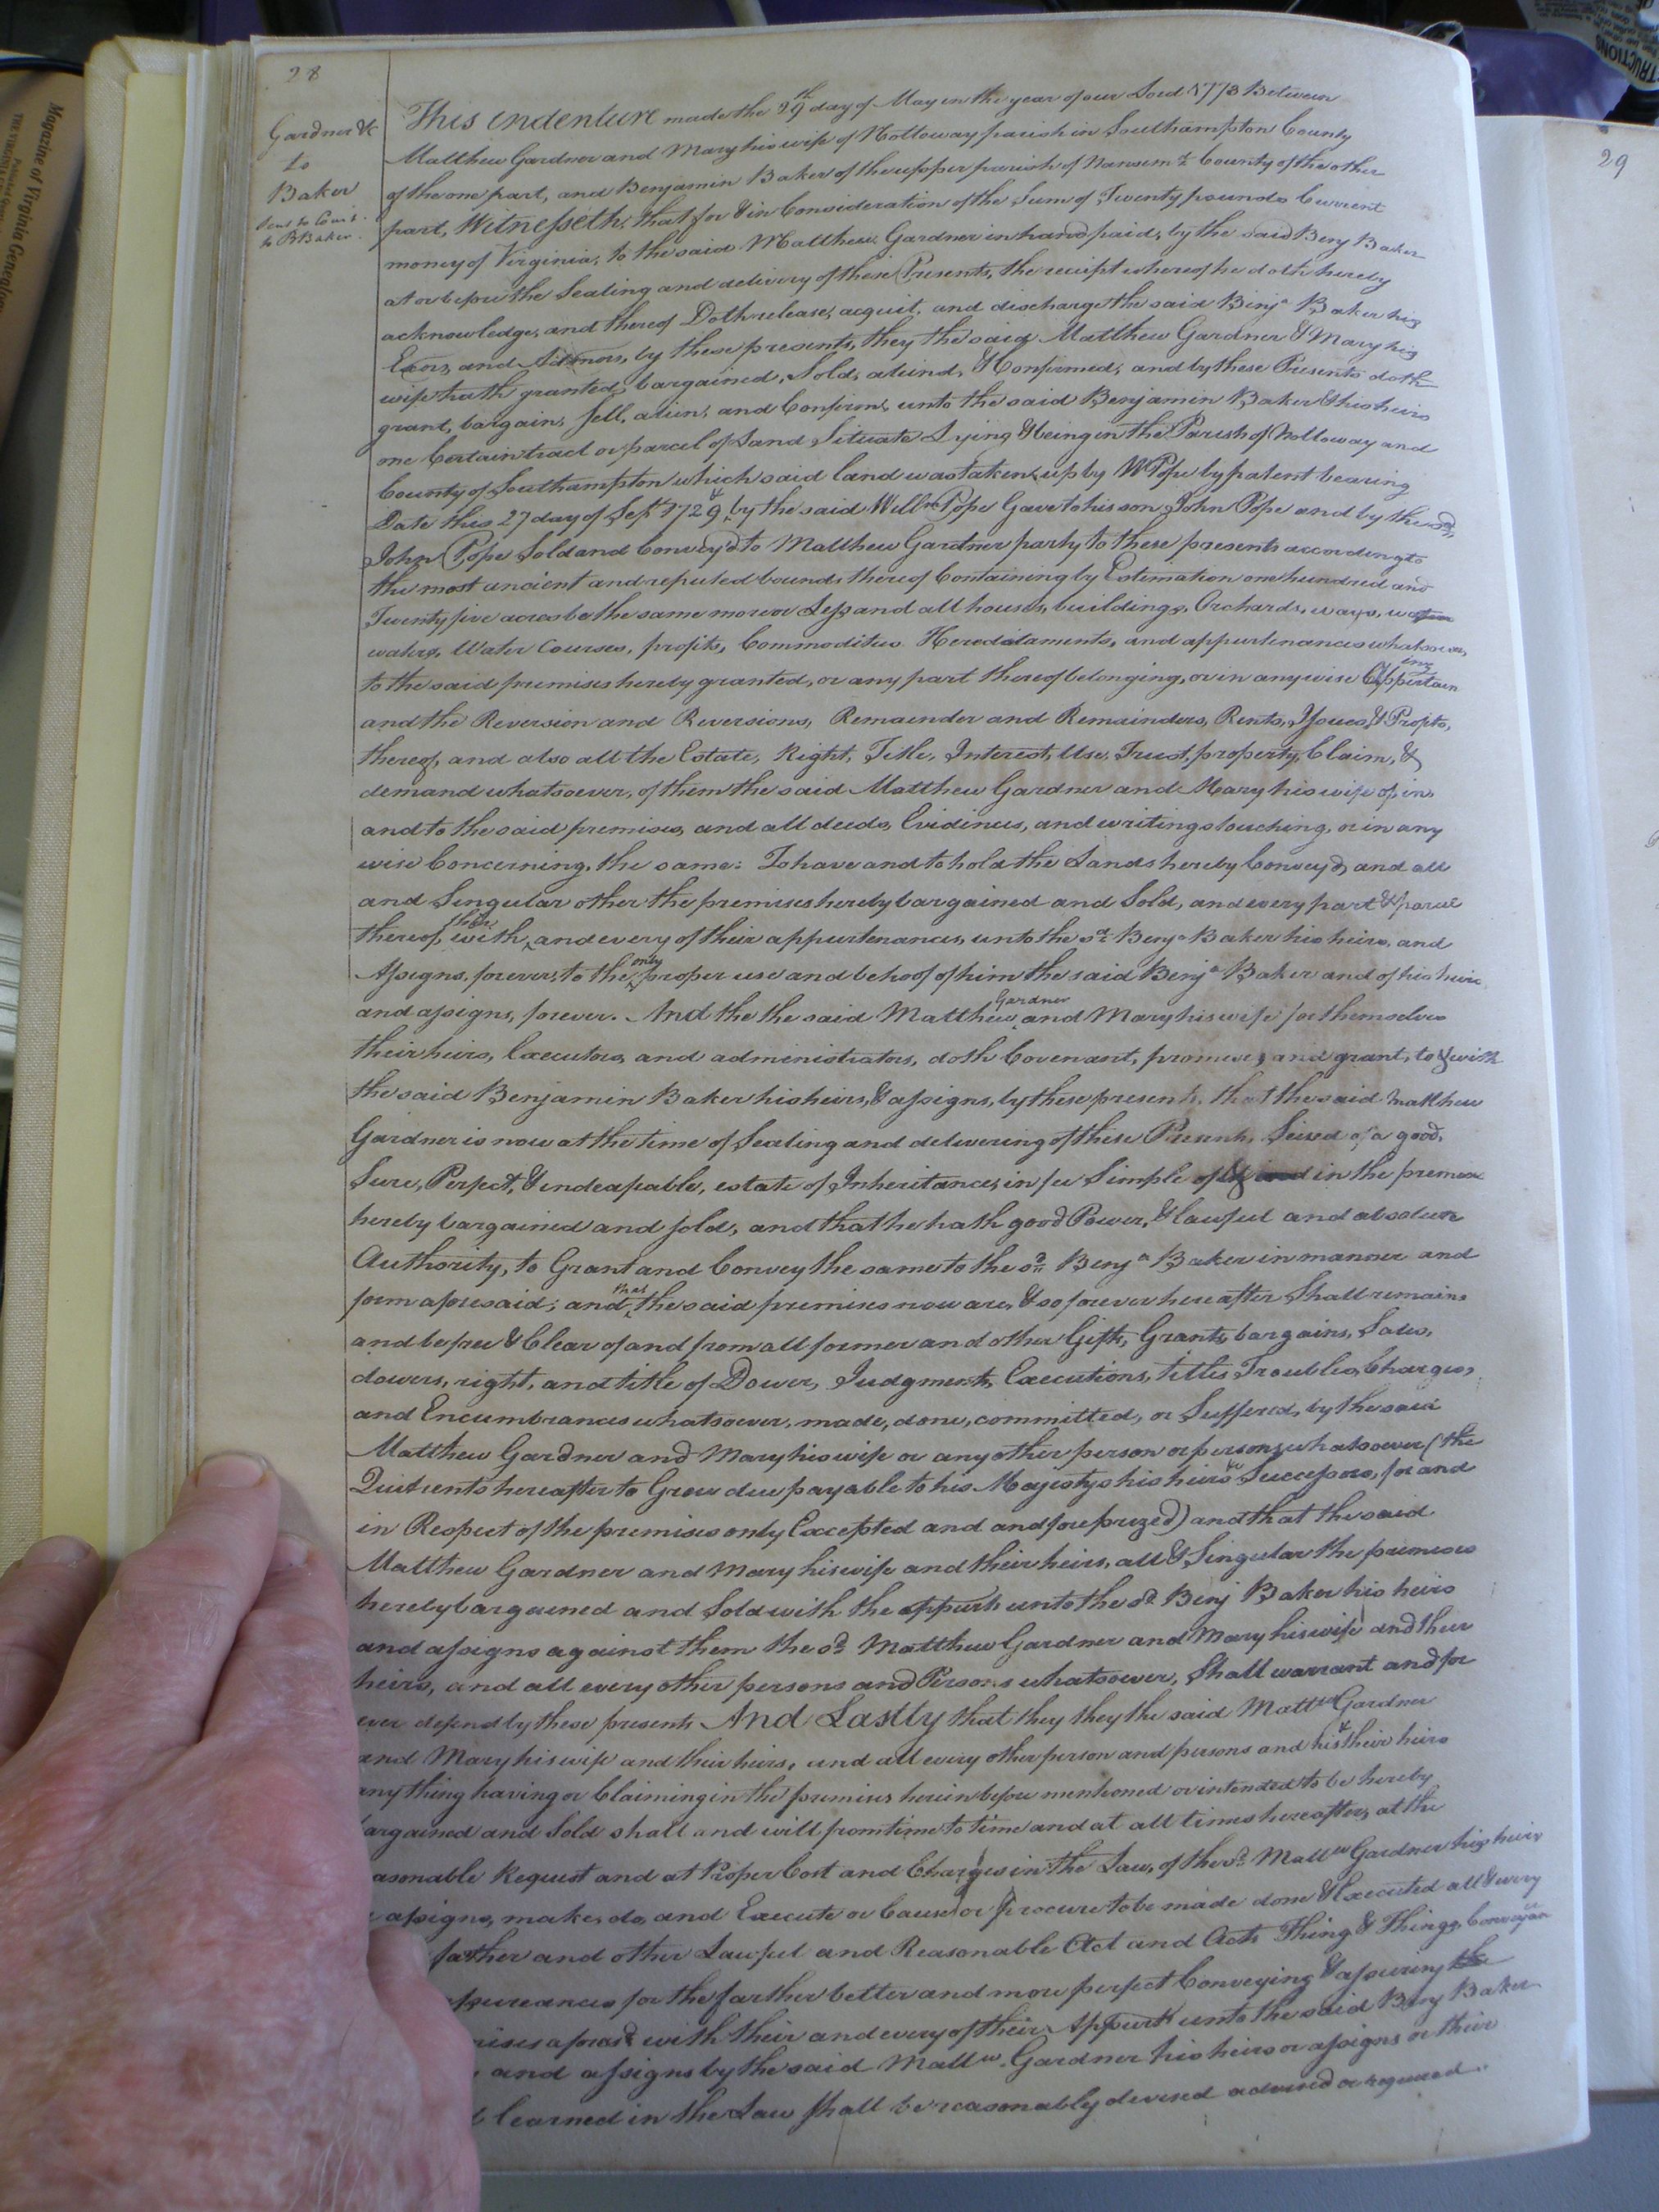 28
Gardner &c
to
Baker
to B Baker
This indenture made the 29th day of May in the year of our Lord 1773 Between
Matthew Gardner and Mary his wife of Nottoway parish in Southampton County
of the one part, and Benjamin Baker of the upper parish of Nansemd County of the other
part, Witnesseth, that for & in Consideration of the Sum of Twenty pounds Current
money of Virginia, to the said Matthew Gardner in hand paid, by the said Benj Baker
at or before the Sealing and delivery of these Presents, the receipt whereof he doth hereby
acknowledge, and thereof Doth release, acquit, and discharge the said Benja Baker his
Exors, and Admors, by these presents, they the said Matthew Gardner & Mary his
wife hath granted, bargained, Sold, aliend, & Confirmed, and by these Presents doth
grant, bargain, Sell, alien, and Confirm, unto the said Benjamin Baker & his heirs
one Certain tract or parcel of Land Situate Lying & being in the Parish of Nottoway and
County of Southampton which said land was taken up by W Pope by patent bearing
Date this 27 day of Sept 1729 & by the said Willm Pope Gave to his son John Pope and by the sd
John Pope Sold and Convey'd to Matthew Gardner party to these presents according to
the most ancient and reputed bounds thereof Containing by Estimation one hundred and
Twenty five acres be the same more or Less and all houses, buildings, Orchards, ways,
waters, Water Courses, profits, Commodities Hereditaments, and appurtenances whatsoever,
to the said premises hereby granted, or any part thereof belonging, or in any wise Appertaining
and the Reversion and Reversions, Remainder and Remainders, Rents, Issues, & Profits,
thereof, and also all the Estate, Right, Title, Interest, Use, Trust, property, Claim, &
demand whatsoever, of them the said Matthew Gardner and Mary his wife of in,
and to the said premises, and all deeds, Evidinces, and writings touching, or in any
wise Concerning, the same: To have and to hold the Lands hereby Convey'd, and all
and Singular other the premises hereby bargained and Sold, and every part & parcel
thereof, with their and every of their appurtenances, unto the sd Benja Baker his heirs, and
Assigns, forever, to the only proper use and behoof of him the said Benja Baker and of his heirs
and assigns, forever. And the the said Matthew Gardner and Mary his wife for themselves
their heirs, Executors, and administrators, doth Covenant, promise, and grant, to & with
the said Benjamin Baker his heirs, & assigns, by these presents, that the said Matthew
Gardner is now at the time of Sealing and delivering of these Presents, Seised of a good,
Sure, Perfect, & indeafable, estate of Inheritance, in fee Simple of & in the premises
hereby bargained and sold, and that he hath good Power, & lawful and absolute
Authority, to Grant and Convey the same to the sd Benja Baker in manner and
form aforesaid; and that the said premises now are, & so forever hereafter Shall remain,
and be free & Clear of and from all former and other Gifts, Grants, bargains, Sales,
dowers, right, and title of Dower, Judgments, Executions, titles, Troubles, Charges,
and Encumbrances whatsoever, made, done, committed, or Suffered, by the said
Matthew Gardner and Mary his wife or any other person or persons whatsoever (the
Quitrents hereafter to Grow due payable to his Majestys his heirs & Successors, for and
in Respect of the premises only Excepted and and foreprized) and that the said
Matthew Gardner and Mary his wife and their heirs, all & Singular the premises
hereby bargained and Sold with the appurts unto the sd Benj Baker his heirs
and assigns against them the sd Matthew Gardner and Mary his wife and their
heirs, and all every other persons and Persons whatsoever, Shall warrant and for
ever defend by these presents And Lastly that they they the said Mattw Gardner
and Mary his wife and their heirs, and all every other person and persons and his & their heirs
anything having or Claiming in the premises herein before mentioned or intended to be hereby
argained and Sold shall and will from time to time and at all times hereafter, at the
asonable Request and at Proper Cost and Charges in the Law, of the sd Mattw Gardner his heirs
assigns, make, do, and Execute or Cause or procure to be made done & Executed all & every
farther and other Lawful and Reasonable Act and Acts Thing & Things, Conveyan
ssureances for the farther better and more perfect Conveying & assuring the
mises aforesd with their and every of their Appurts unto the said Benj Baker
and assigns by the said Mattw Gardner his heirs or assigns or their
learned in the Law shall be reasonably devised advised or required
29
Magazine of Virginia Genealogy